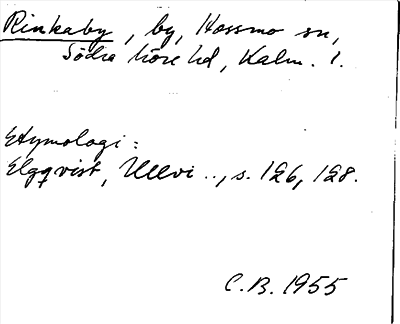 Rinkaby, by, Hossmo sn,
Södra Möre hd, Kalm. l.
Etymologi:
Elgqvist, Ullvi .., s. 126, 128.
C.B. 1955